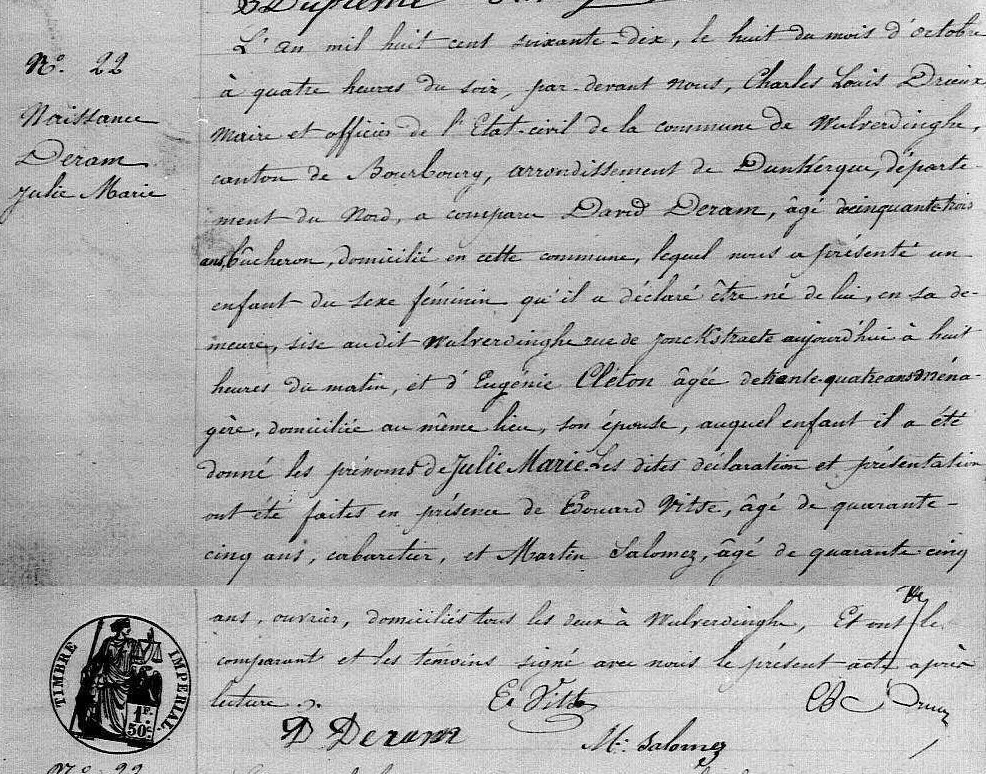 Nº. 22
Naissance
Deram
Julie Marie
L'an mil huit cent soixante-dix, le huit du mois d'octobre
à quatre heures du soir, par-devant nous, Charles Louis Drieux
Maire et officier de l'Etat-civil de la commune de Wulverdinghe,
canton de Bourbourg, arrondissement de Dunkerque, départe-
ment du Nord, a comparu David Deram, âgé de cinquante trois
ans, bûcheron, domicilié en cette commune, lequel nous a présenté un
enfant du sexe féminin qu'il a déclaré être né de lui, en sa de-
meure, sise audit Wulverdinghe rue de Jonckstraete aujourd'hui à huit
heures du matin, et d'Eugénie Cléton âgée de trente-quatre ans ména-
gère, domiciliée au même lieu, son épouse, auquel enfant il a été
donné les prénoms de Julie Marie. Les dites déclaration et présentation
ont été faites en présence de Edouard Vitse, âgé de quarante-
cinq ans, cabaretier, et Martin Salomez, âgé de quarante cinq
ans, ouvrier, domiciliés tous les deux à Wulverdinghe, Et ont les
comparant et les témoins signé avec nous le présent acte après
lecture.
E. Vitse
Drieux
D Deram
M. Salomez
TIMBRE IMPERIAL
1 F.
50 c.
Nº. 22